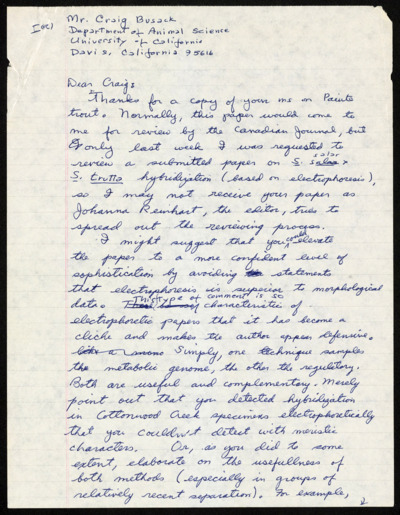 Mr. Craig Busack
Department of Animal Science
University of California
Davis, California 95616
Dear Craig:
Thanks for a copy of your ms on Paiute
trout. Normally, this paper would come to
me for review by the Canadian Journal, but
only last week I was requested to
review a submitted paper on S. salar x
S. trutta hybridization (based on electrophoresis),
so I may not receive your paper as
Johanna Reinhart, the editor, tries to
spread out the reviewing process.
I might suggest that you could elevate
the paper to a more confident level of
sophistication by avoiding statements
that electrophoresis is superior to morphological
data. This type of comment is so characteristic of
electrophoretic papers that it has become a
cliche and makes the author appear defensive.
Simply, one technique samples
the metabolic genome, the other the regulatory.
Both are useful and complementary. Merely
point out that you detected hybridization
in Cottonwood Creek specimens electrophoretically
that you couldn't detect with meristic
characters. Or, as you did to some
extent, elaborate on the usefullness of
both methods (especially in groups of
relatively recent separation). For example,